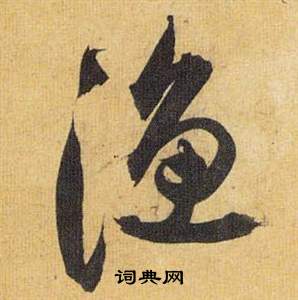 渔
词典网